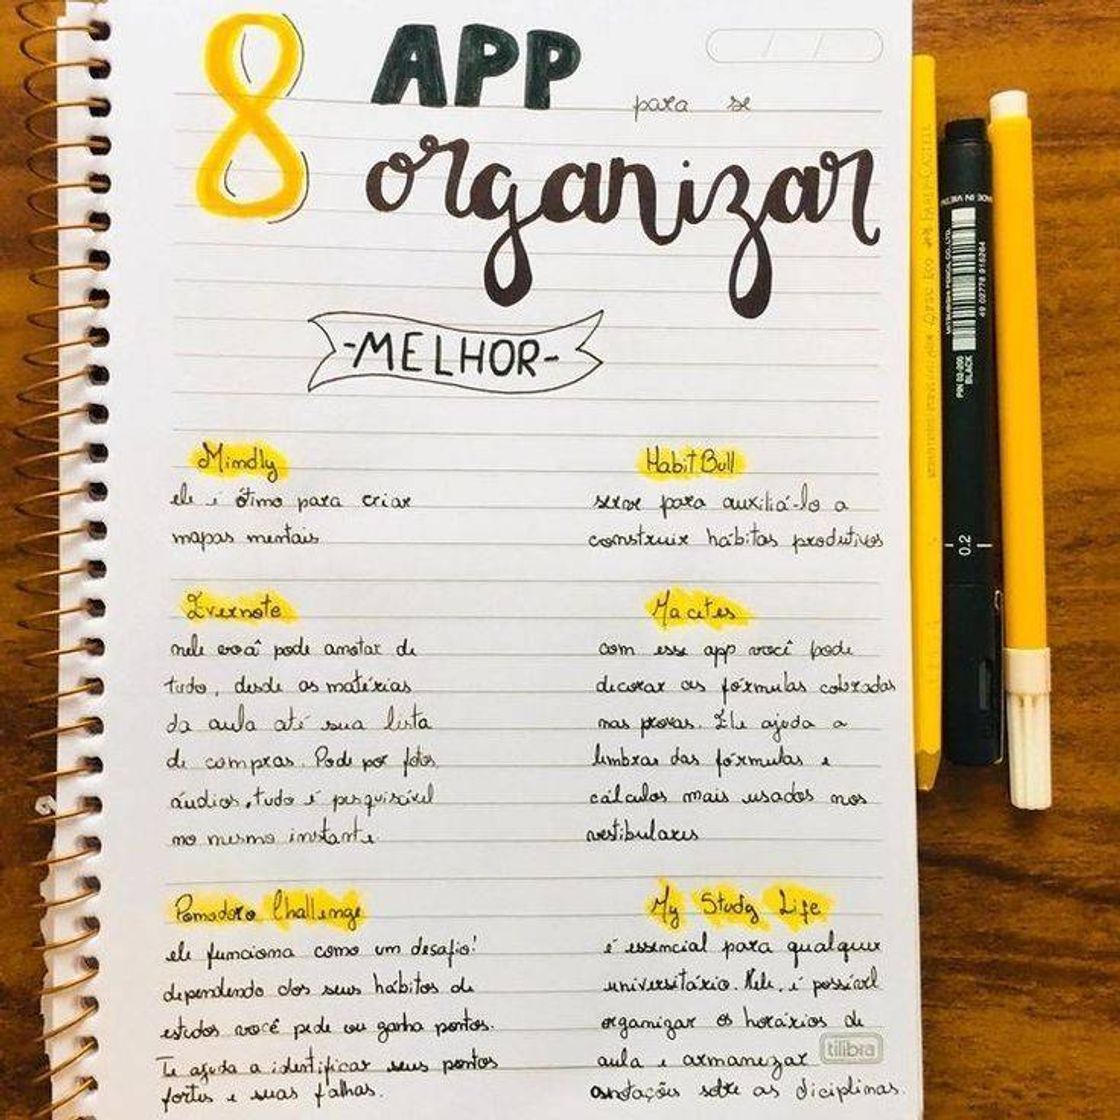 8 APP para se
organizar
-MELHOR-
Mindly
ele é ótimo para criar
mapas mentais
Evernote
nele você pode anotar de
tudo, desde as matérias
da aula até sua lista
de compras. Pode por fotos,
áudios, tudo é pesquisável
no mesmo instante.
Pomodoro Challenge
ele funciona como um desafio!
dependendo dos seus hábitos de
estudos você pede ou ganha pontos.
Te ajuda a identificar seus pontos
fortes e suas falhas.
HabitBull
serve para auxiliá-lo a
construir hábitos produtivos
Macetes
com esse app você pode
decorar as fórmulas cobradas
nas provas. Ele ajuda a
lembrar das fórmulas e
cálculos mais usados nos
vestibulares
My Study Life
é essencial para qualquer
universitário. Nele, é possível
organizar os horários de
aula e armanezar
anotações sobre as diciplinas.
tilibra
MITSUBISHI PENCIL CO., LTD.
49 02778 915264
PIN 02-200
BLACK
0.2